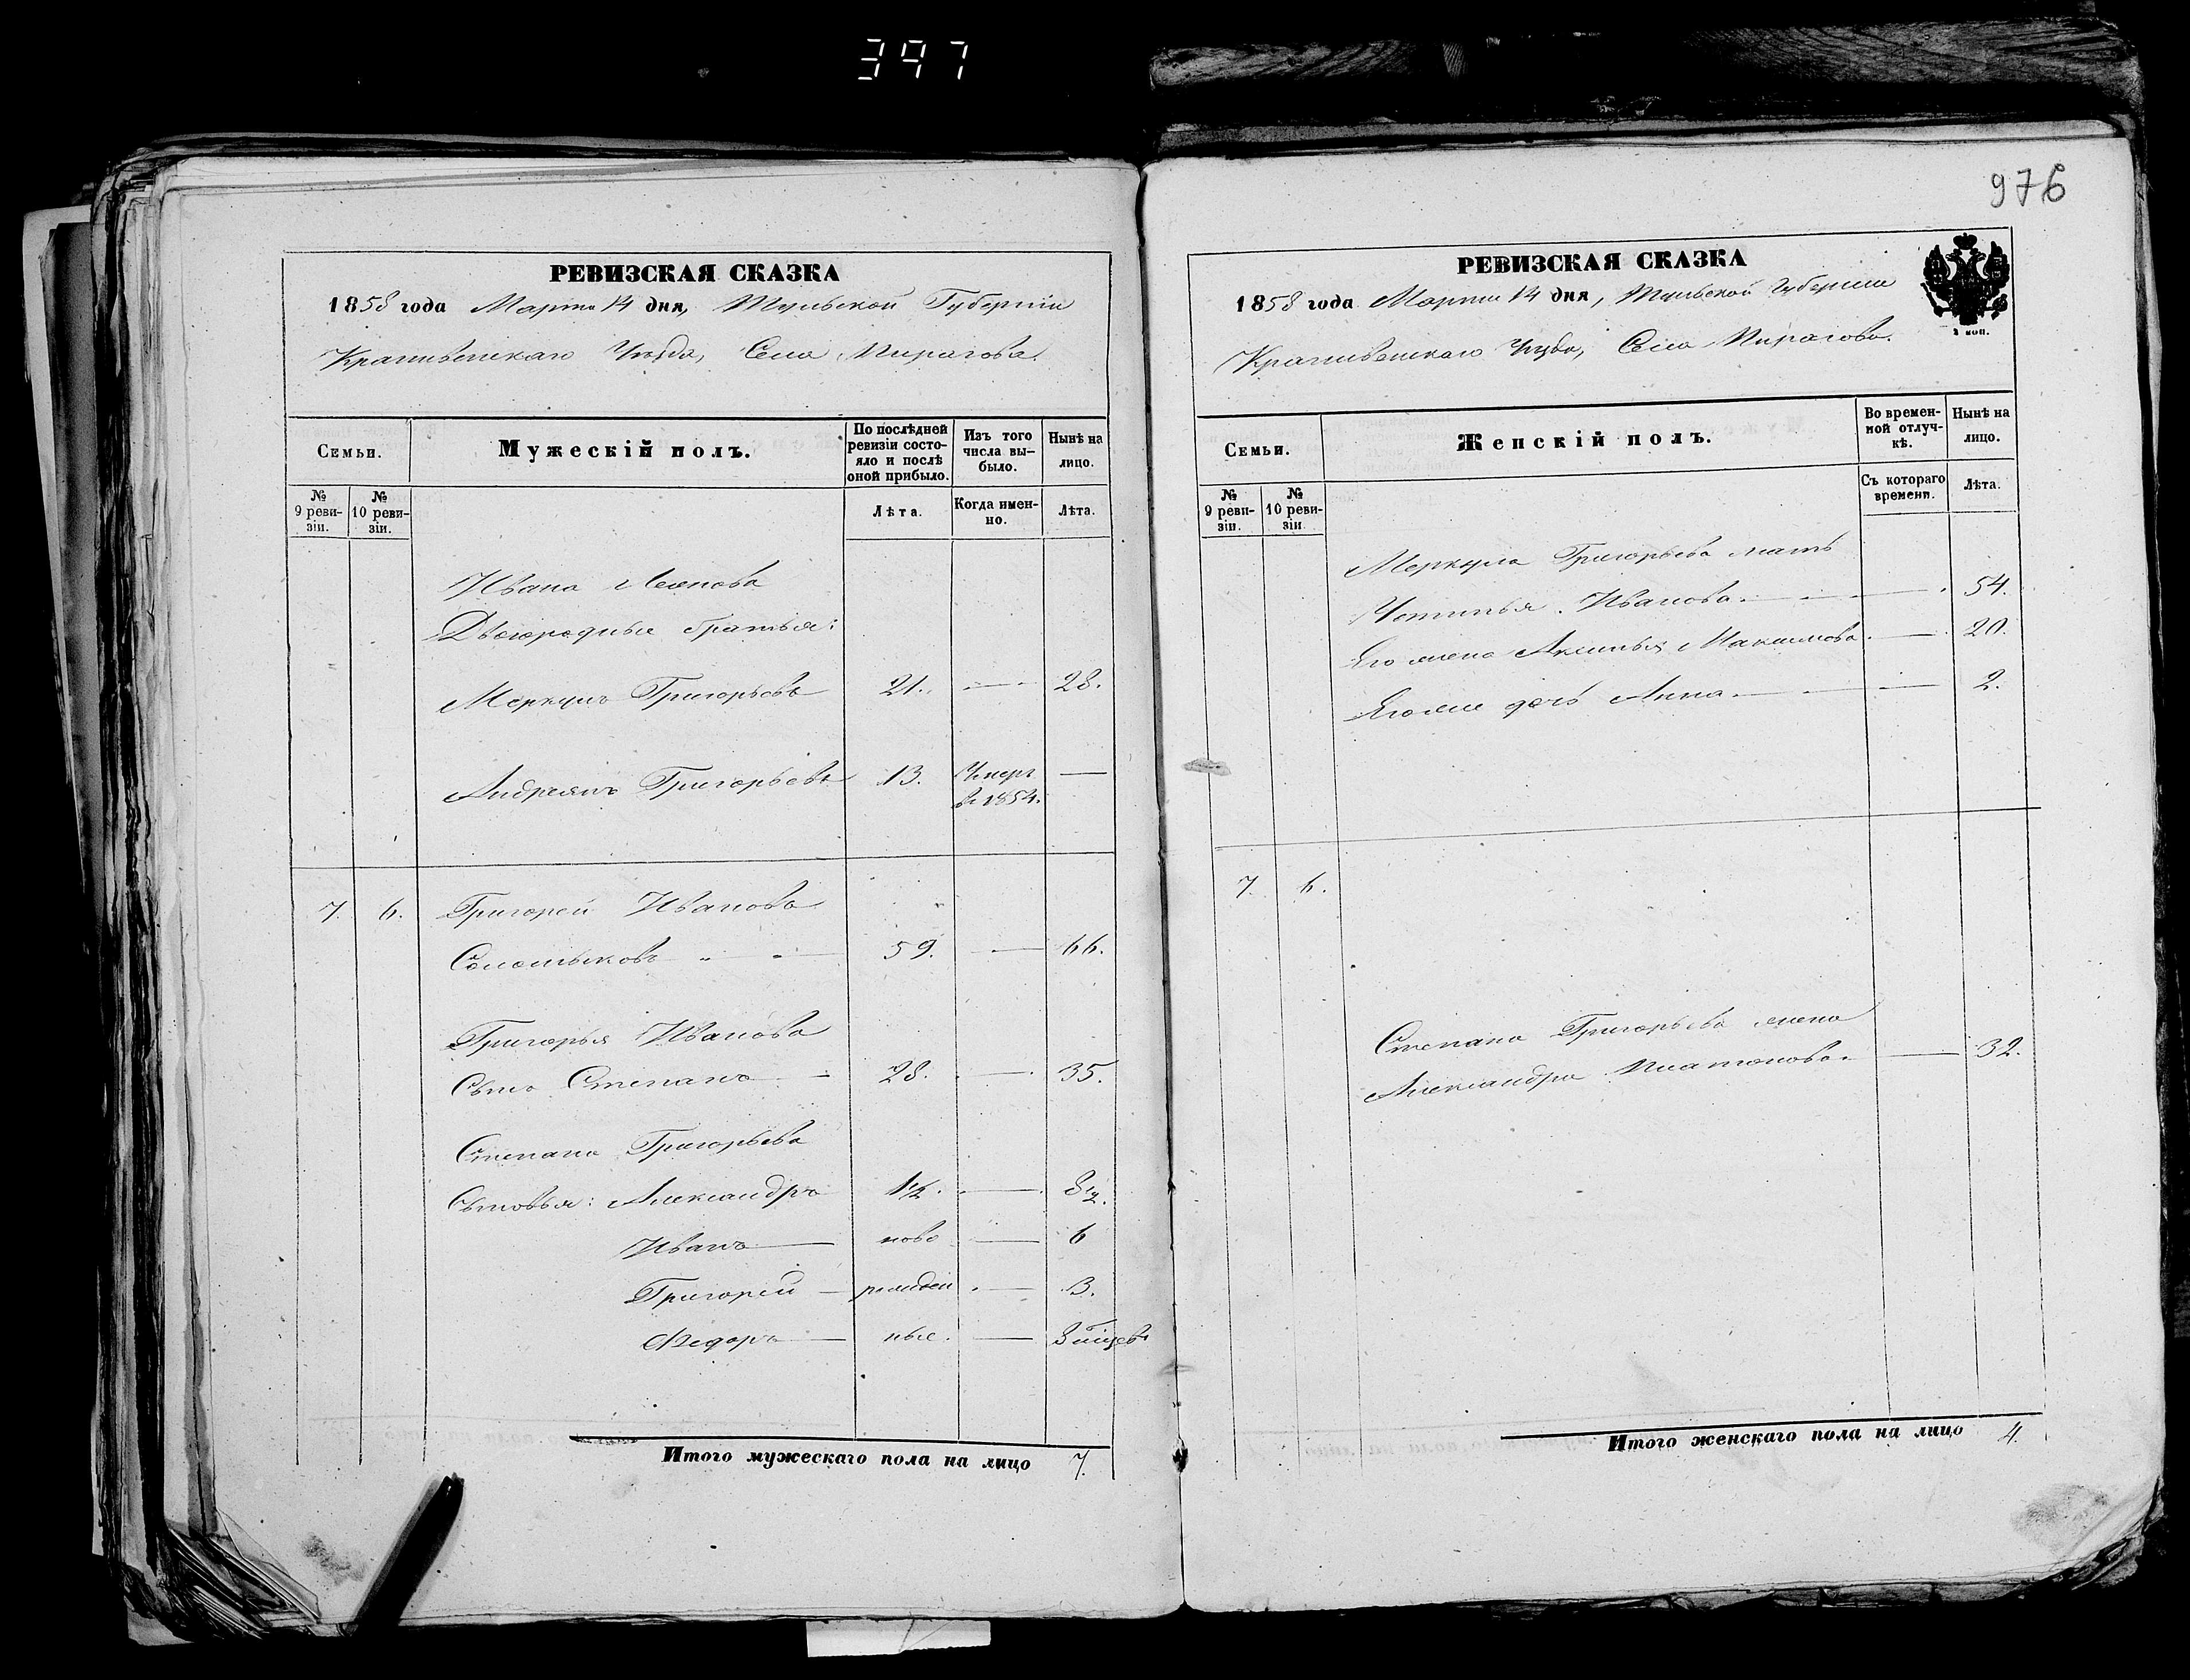 397
976
РЕВИЗСКАЯ СКАЗКА
1858 года Марта 14 дня, Тульской Губерніи
Крапивенскаго Уезда, Села Пирагова.
Семьи.
Мужескій полъ.
По послѣдней ревизіи состо-
яло и послѣ оной прибыло.
Изъ того числа вы-
было.
Нынѣ на лицо.
№ 9 реви-
зіи.
№ 10 реви-
зіи.
Лѣта.
Когда имен-
но.
Лѣта.
Ивана
Двоюродные братья:
Меркулъ Григорьевъ 21. 28.
Андреянъ Григорьевъ 13. Умеръ
въ 1854.
7. 6. Григорей Ивановъ
59. 66.
Григорья Иванова
Сынъ Степанъ 28. 35.
Степана Григорьева
Сыновья: Александръ 1½. 8½.
Иванъ ново 6
Григорей рожден 3.
Федоръ ные. 3 месяцевъ
Итого мужескаго пола на лицо 7.
РЕВИЗСКАЯ СКАЗКА
1858 года Марта 14 дня, Тульской Губерніи
Крапивенскаго Уезда, Села Пирагова.
Семьи.
Женскій полъ.
Во времен-
ной отлуч-
кѣ.
Нынѣ на
лицо.
№ 9 реви-
зіи.
№ 10 реви-
зіи
Съ котораго
времени.
Лѣта.
Меркула Григорьева мать
Устинья Иванова 54.
Его жена Аксинья Максимова 20.
Его же дочь Анна 2.
7. 6.
Степана Григорьева жена
Александра Платонова 32.
Итого женскаго пола на лицо 4.